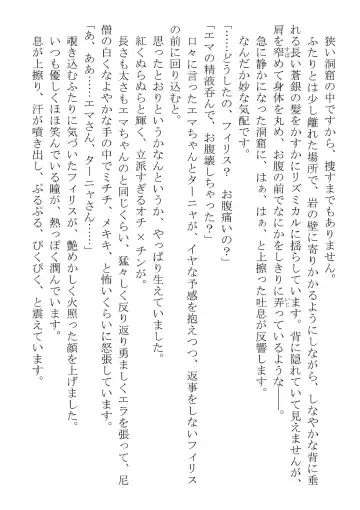 狭い洞窟の中ですから、捜すまでもありません。
ふたりとは少し離れた場所で、岩の壁に寄りかかるようにしながら、しなやかな背に垂れる長い蒼銀の髪をかすかにリズミカルに揺らしています。背に隠れていて見えませんが、肩を窄めて身体を丸め、お腹の前でなにかをしきりに弄っているような――。
急に静かになった洞窟に、はぁ、はぁ、と上擦った吐息が反響します。
なんだか妙な気配です。
「……どうしたの、フィリス？　お腹痛いの？」
「エマの精液呑んで、お腹壊しちゃった？」
口々に言ったエマちゃんとターニャが、イヤな予感を抱えつつ、返事をしないフィリスの前に回り込むと。
思ったとおりというかなんというか、やっぱり生えていました。
紅くぬらぬらと輝く、立派すぎるオチ×チンが。
長さも太さもエマちゃんのと同じくらい、猛々しく反り返り勇ましくエラを張って、尼僧の白くなよやかな手の中でミチチ、メキキ、と怖いくらいに怒張しています。
「あ、ああ……エマさん、ターニャさん……」
覗き込むふたりに気づいたフィリスが、艶めかしく火照った顔を上げました。
いつも優しくほほ笑んでいる瞳が、熱っぽく潤んでいます。
息が上擦り、汗が噴き出し、ぷるぷる、ぴくぴく、と震えています。